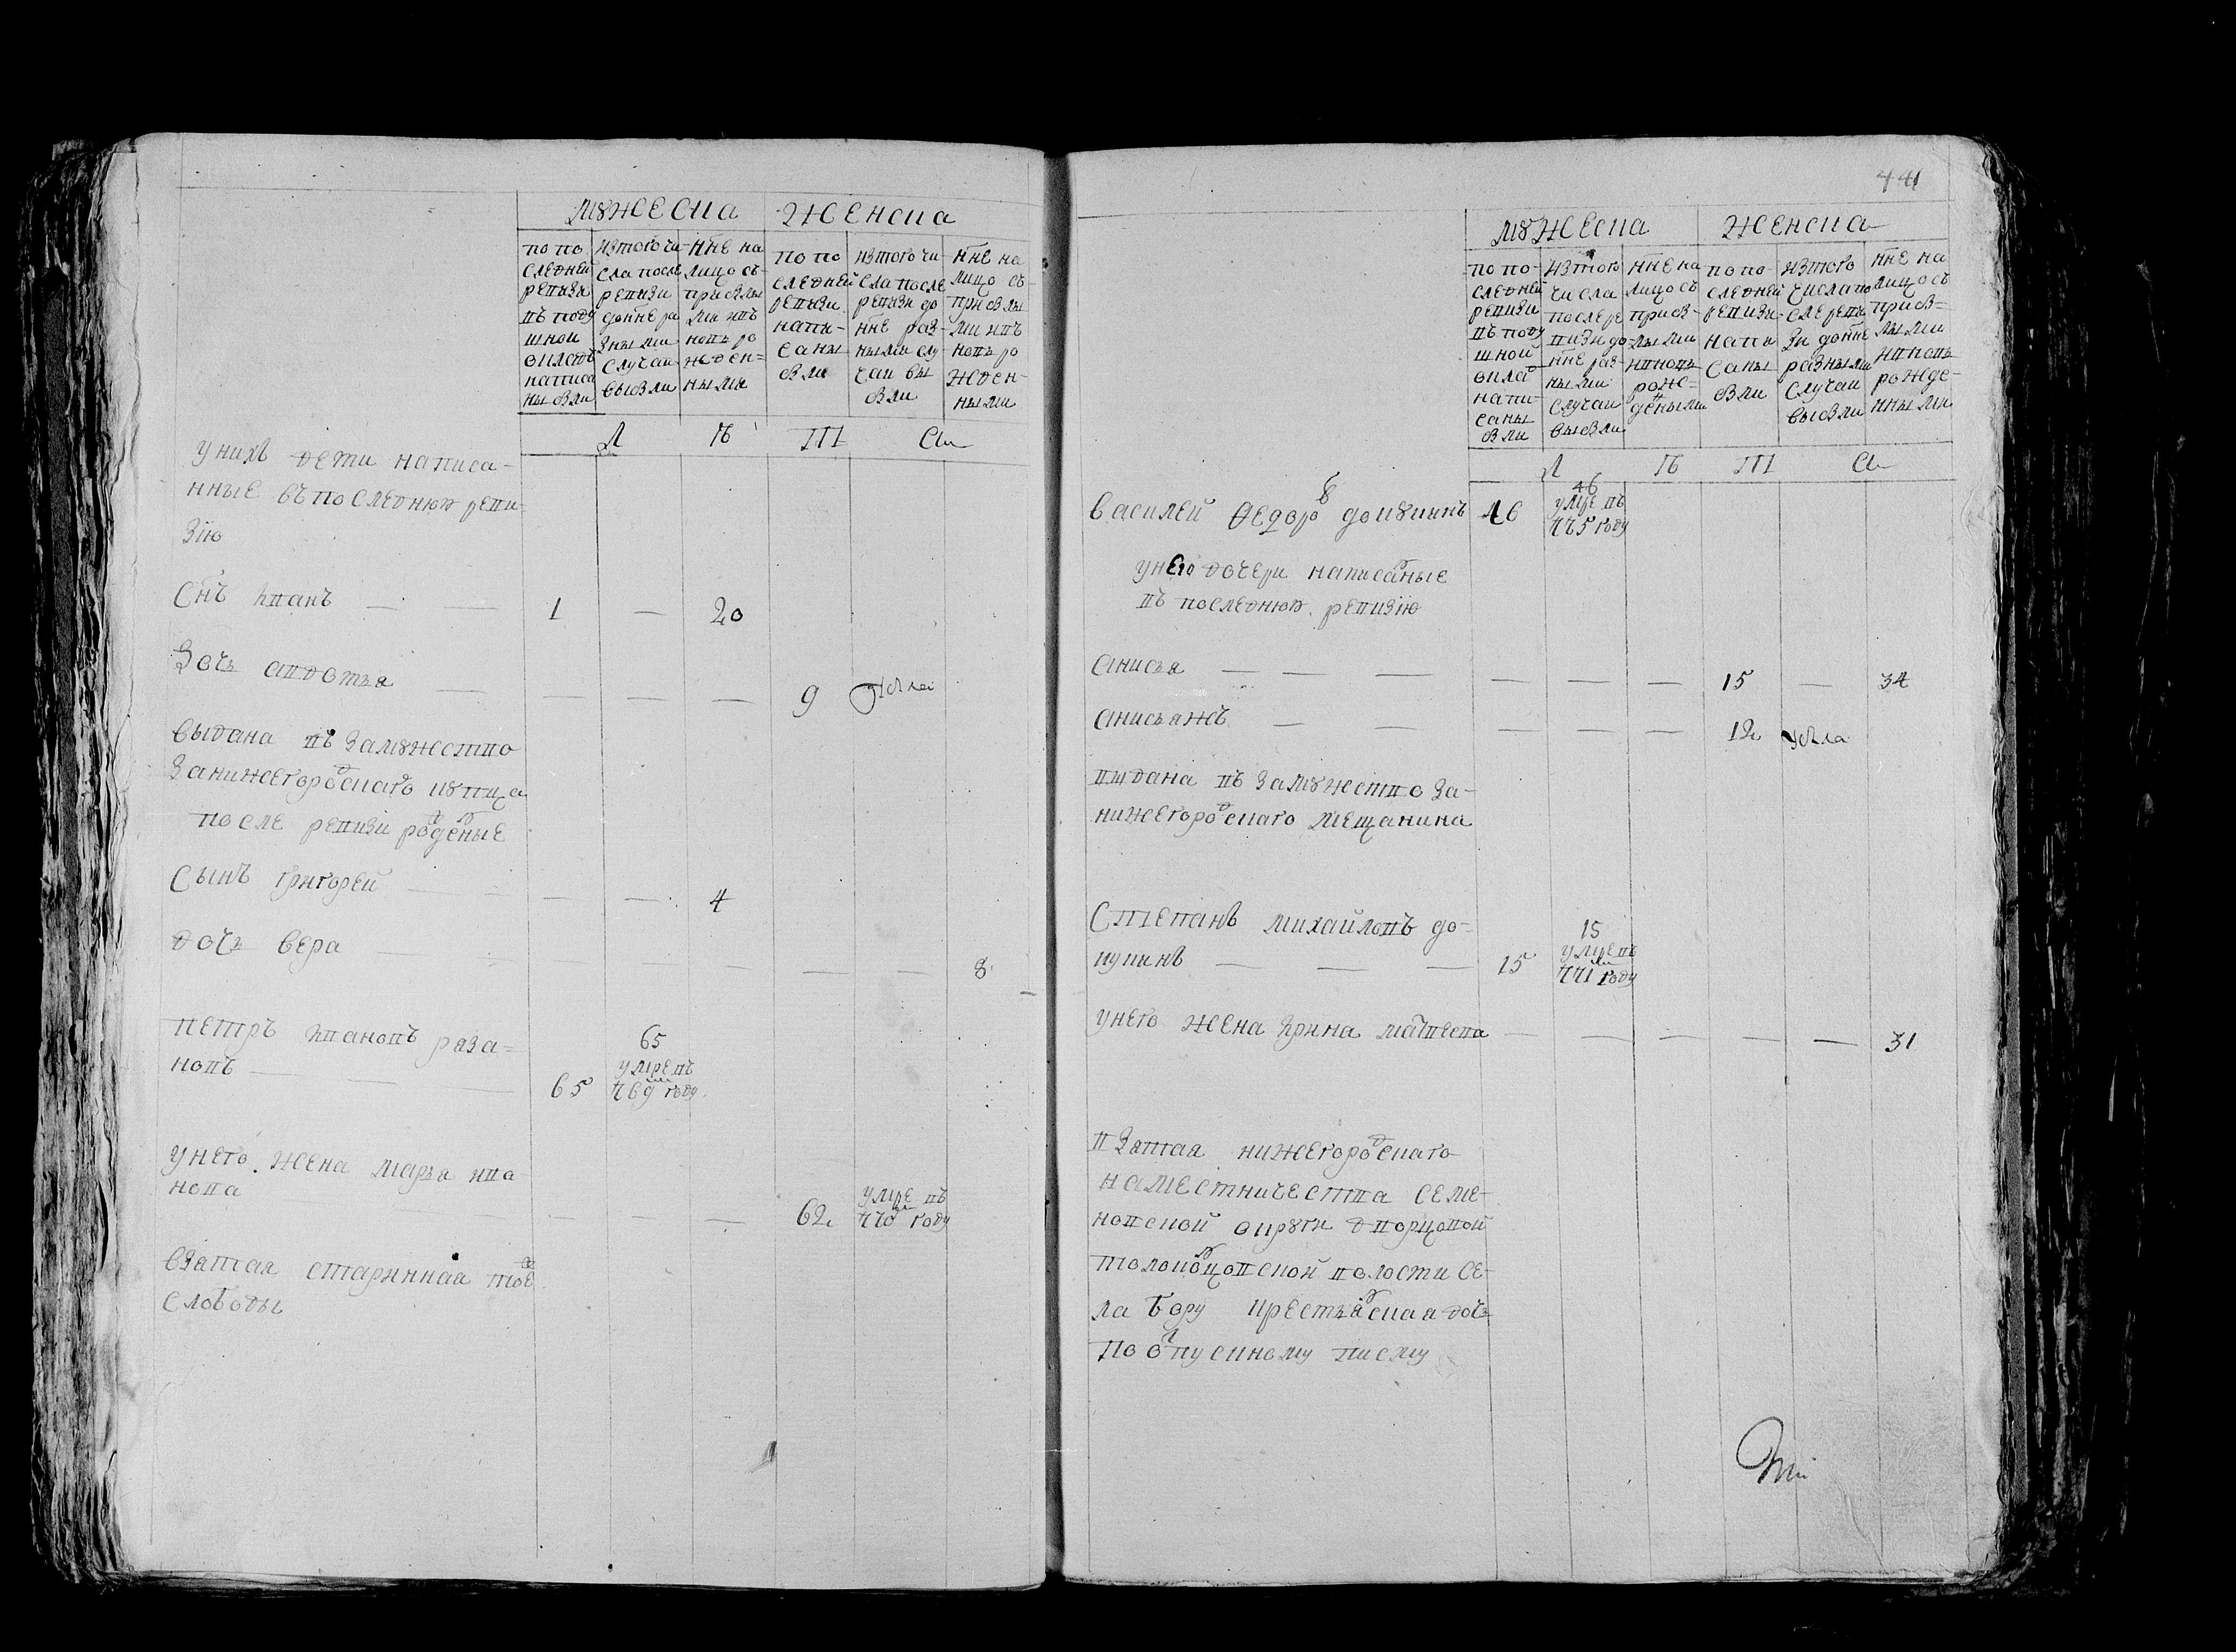 мужеска женска
по по
следней
ревизи
въ поду
шной
окладъ
написа
ны были
из того чи
сла после
ревизи
до нне ра
зными
случаи
выбыли
нне на
лицо съ
прибылы
ми и въ
новь ро
жден=
ными
по по
следней
ревизи
напи-
саны
были
из того чи-
сла после
ревизи до
нне раз-
ными слу
чаи вы
были
нне на
лицо съ
прибылы
ми и въ
новь ро
жден-
ными
Л
у нихъ дети написа-
нные въ последнюю реви-
зiю
Снъ иванъ 1 20
Дочь авдотья 9
выдана въ замужество
за нижегородскаго купца
после ревизи рожденые
Сынъ григорей 4
дочь вера 8
петръ ивановъ ряза=
новъ 65 65
умре въ
769 году
у него жена марья ива-
нова 62 умре въ
году
взятая старинная тое
слободы
441
мужеска женска
по по-
следней
ревизи
въ поду
шной
оклад
напи-
саны
были
из того
числа
после ре
визи до
нне раз-
ными
случаи
выбыли
нне на
лицо съ
прибы-
лыми
и вновь
рож=
деными
по по-
следней
ревизи
напи
саны
были
из того
числа по
сле реви
зи до нне
разными
случаи
выбыли
нне на
лицо съ
прибы=
лыми
и вновь
рожде-
нными
Л
василей федоров докукинъ 46 46
умре въ
775 году
у него дочери написаные
въ последнюю ревизiю
анисья 15 34
анисьяжъ 12
выдана въ замужество за-
нижегородскаго мещанина
Степанъ михайловъ до-
кукинъ 15 15
умре въ
771 году
у него жена ирина матвева 31
взятая нижегородскаго
наместничества семе-
новской округи дворцовой
толоконцовской волости се-
ла бору крестьянская дочь
по отпускному писму